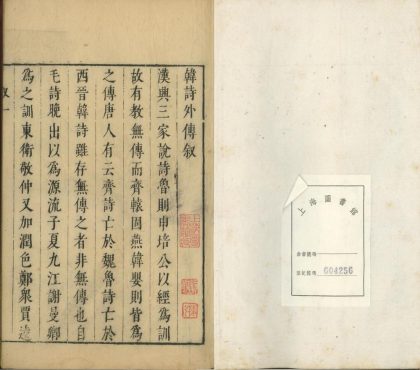 韓詩外傳敘
漢興三家說詩魯則申培公以經為訓
故有教無傳而齊轅固燕韓嬰則皆為
之傳唐人有云齊詩亡於魏魯詩亡於
西晉韓詩雖存無傳之者非無傳也自
毛詩晚出以為源流子夏九江謝曼卿
為之訓東衛敬仲又加潤色鄭眾賈逵
上海圖書館
604256